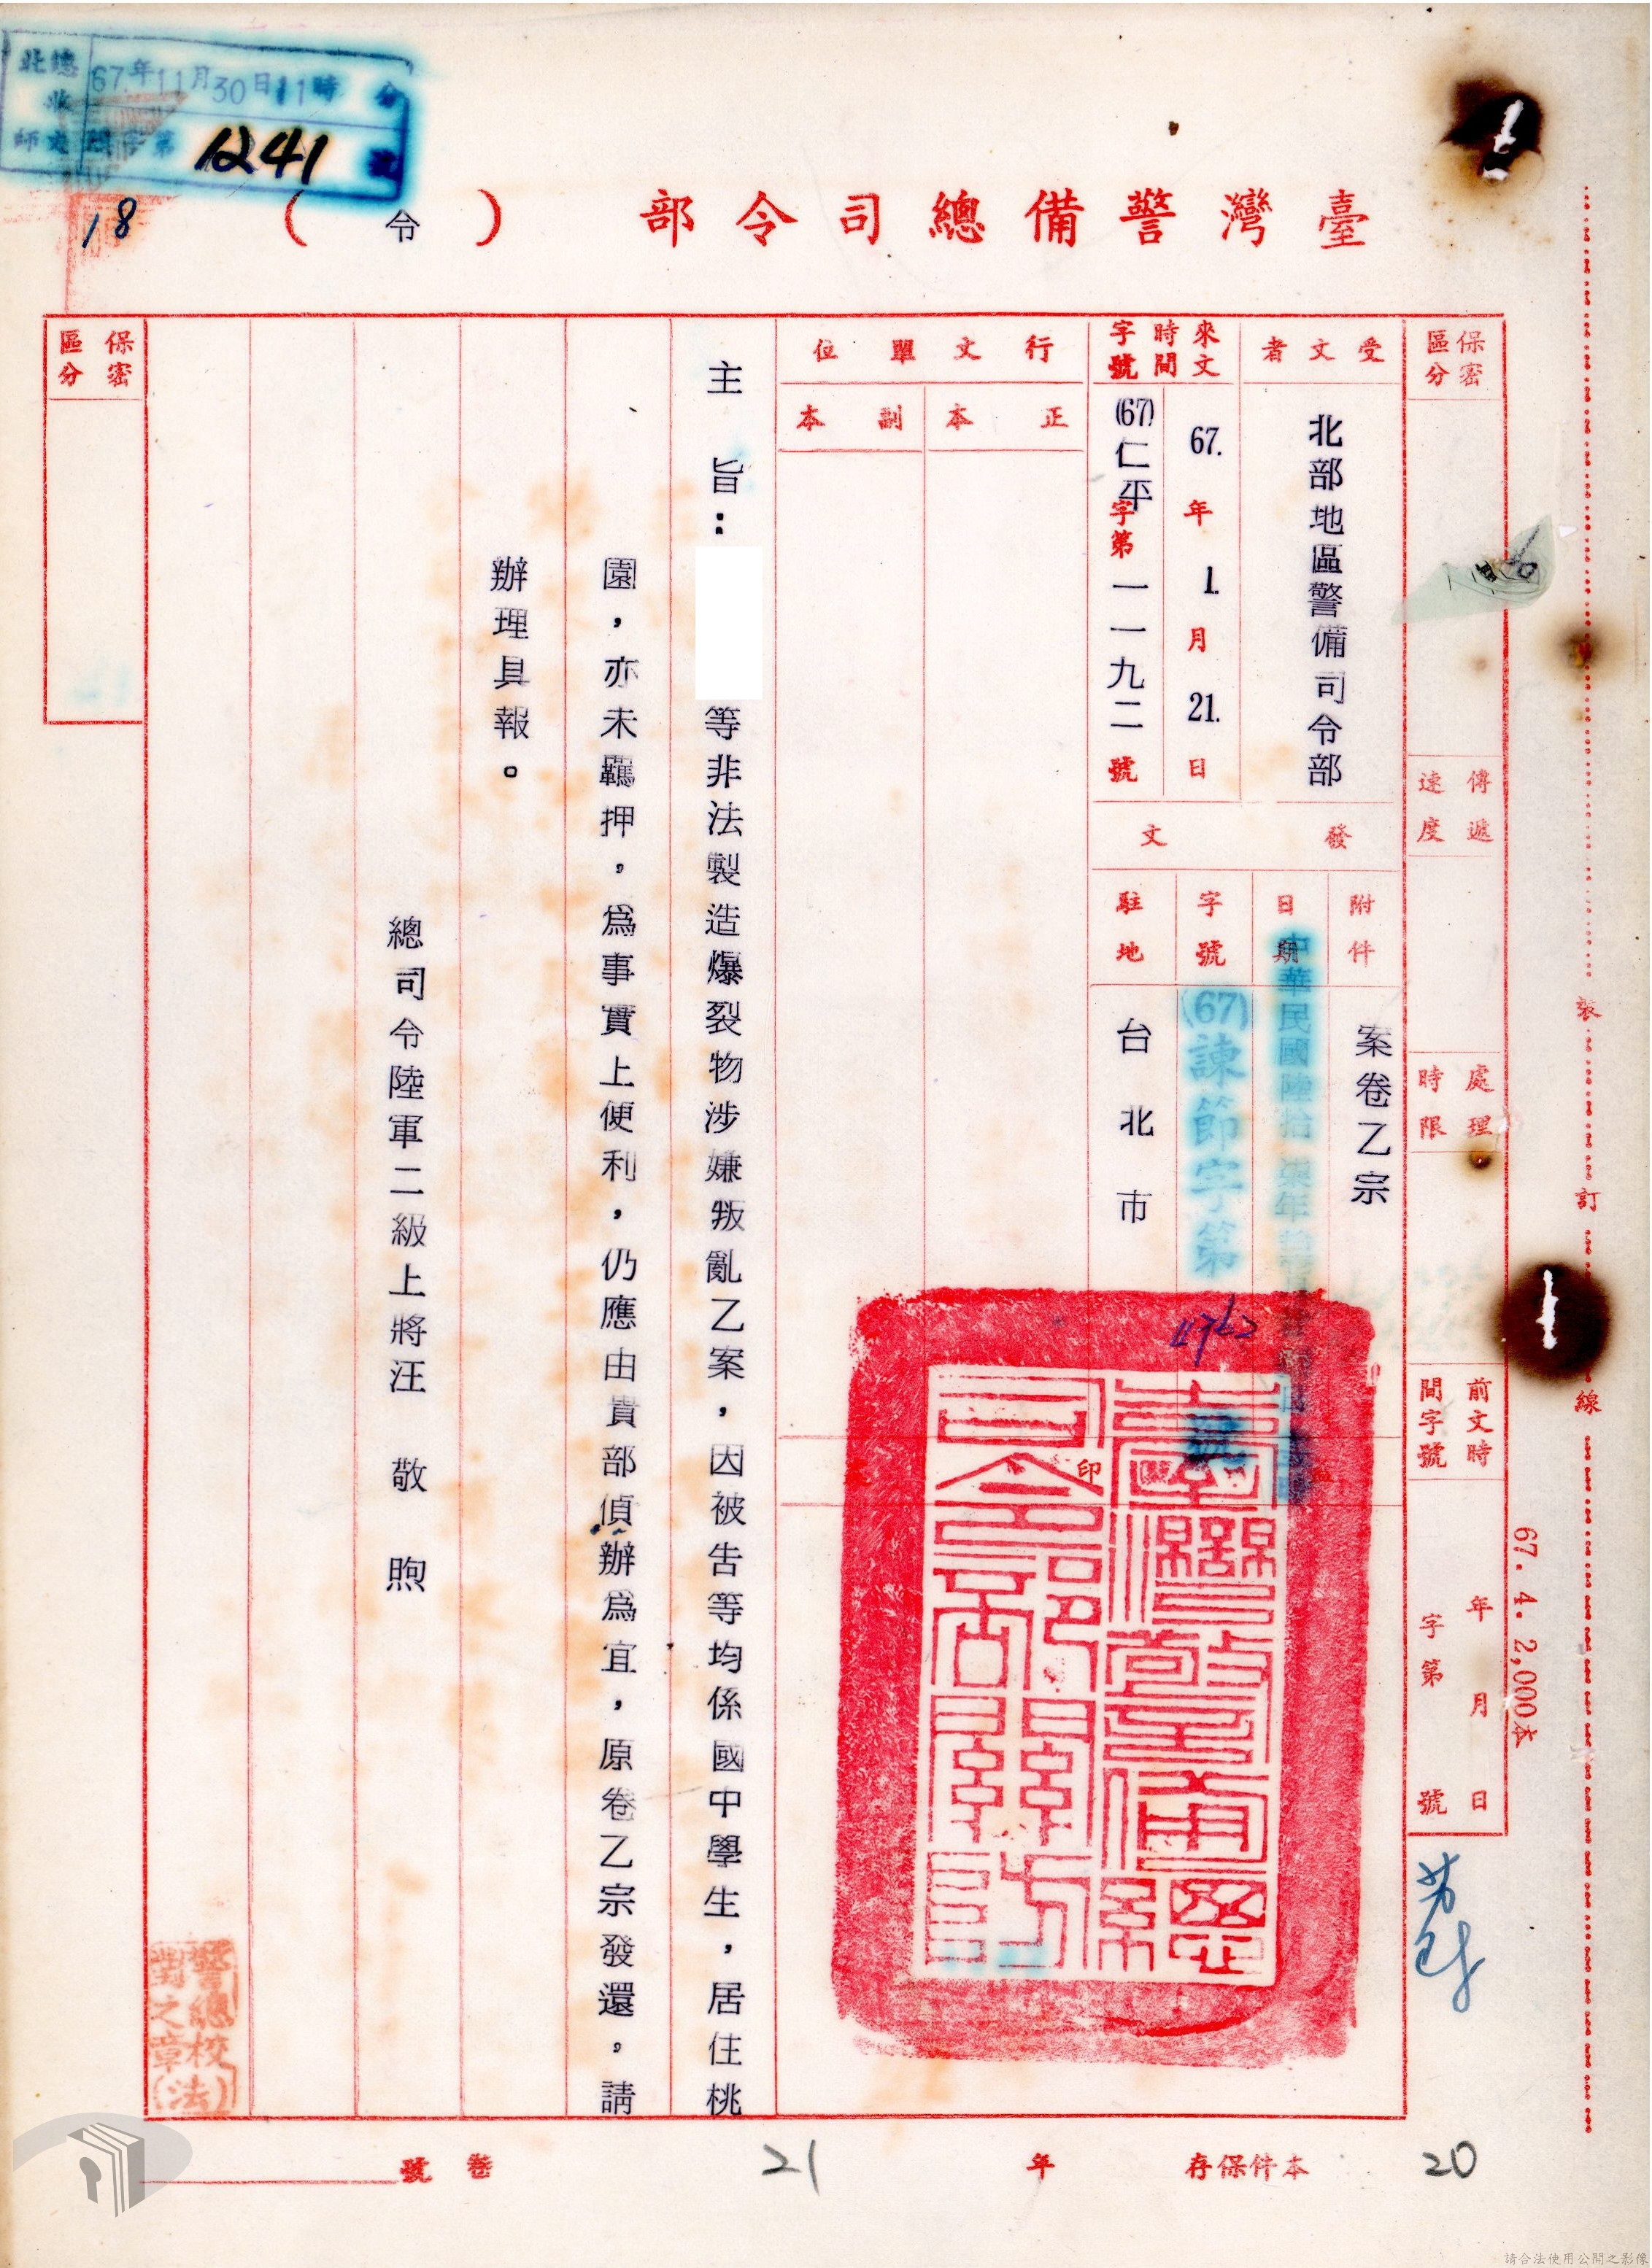 臺灣警備總司令部（令）
總收文
67年11月30日11時 分
字第1241號
北師
18
保密區分
傳遞速度
處理時限
前文時間字號
年 月 日
字第 號
67. 4. 2,000本
裝 訂 線
受文者
北部地區警備司令部
來文時間字號
67.年1.月21.日
(67)仁平字第一一九二號
行文單位
正本
副本
發文
附件
案卷乙宗
日期
中華民國陸拾柒年
字號
(67)諫節字第
4762
號
駐地
台北市
印
臺灣警備總司令部關防
主旨：
等非法製造爆裂物涉嫌叛亂乙案，因被告等均係國中學生，居住桃
園，亦未羈押，為事實上便利，仍應由貴部偵辦為宜，原卷乙宗發還。請
辦理具報。
總司令陸軍二級上將汪敬煦
保密區分
警總校對之章(法)
20
本件保存
年
21
卷號
請合法使用公開之影像